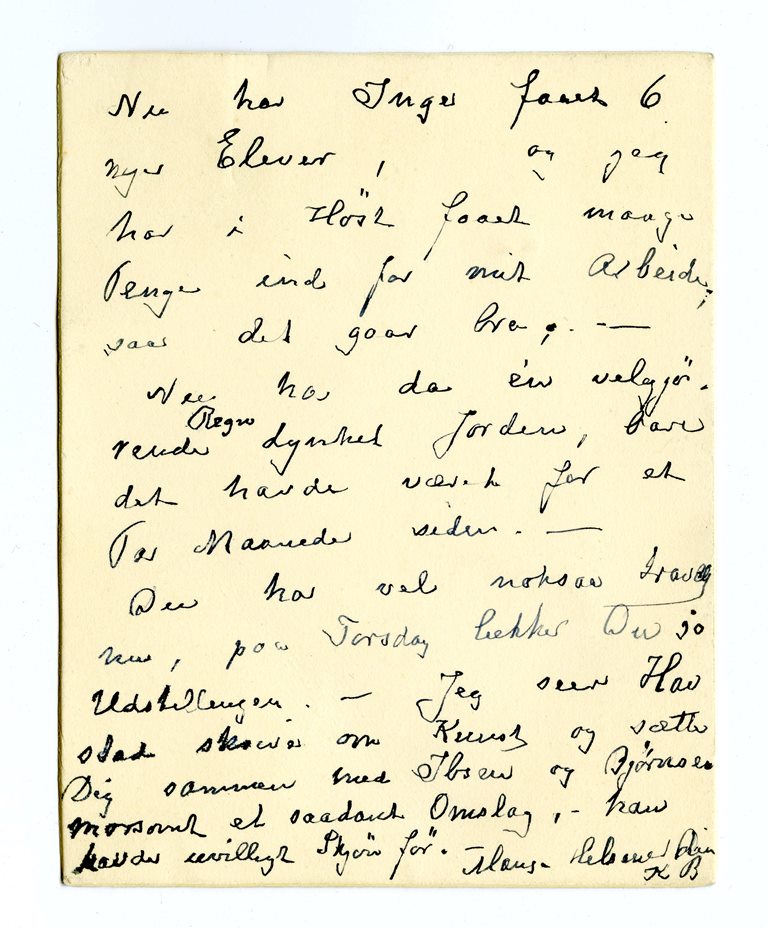 Nu har Inger faaet 6
nye Elever, og jeg
har i Höst faaet mange
Penge ind for mit Arbeide,
saa det gaar bra, . —
Nu har da én velgjö-
Regn
rende dynket Jorden, bare
det havde været for et
Par Maaneder siden. —
Du har vel noksaa travelt
nu, paa Torsdag lukker Du jo
Udstillingen. — Jeg seer Hav
stad skriver om Kunst og sætter
Dig sammen med Ibsen og Bjørnsen
morsomt et saadant Omslag, - han
havde uvilligt Skjön för. Mange Hilsener Din
K B